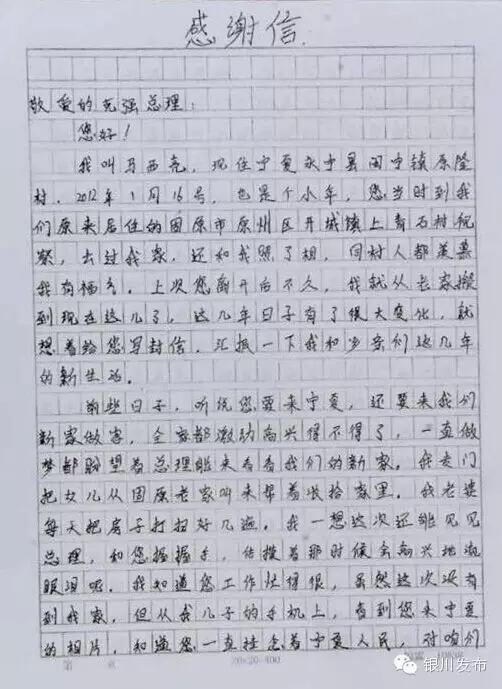 感谢信.
敬爱的克强总理:
您好!
我叫马西克,现住宁夏永宁县闽宁镇原隆
村,2012年1月16号,也是个小年,您当时到我
们原来居住的固原市原州区开城镇上青石村视
察,去过我家,还和我照了相,同村人都羡慕
我有福气。上次您离开后不久,我就从老家搬
到现在这儿了,这几年日子有了很大变化,就
想着给您写封信,汇报一下我和乡亲们这几年
的新生活。
前些日子,听说您要来宁夏,还要来我们
新家做客,全家都激动高兴得不得了,一直做
梦都盼望着总理能来看看我们的新家。我专门
把女儿从固原老家叫来帮着收拾家里。我老婆
每天把房子打扫好几遍。我一想这次还能见见
总理,和您握握手,估摸着那时候会高兴地流
眼泪呢。我知道您工作忙得很,虽然这次没有
到我家,但从我儿子的手机上,看到您来宁夏
的相片,知道您一直挂念着宁夏人民,对咱们
第 页 20×20=400
银川发布